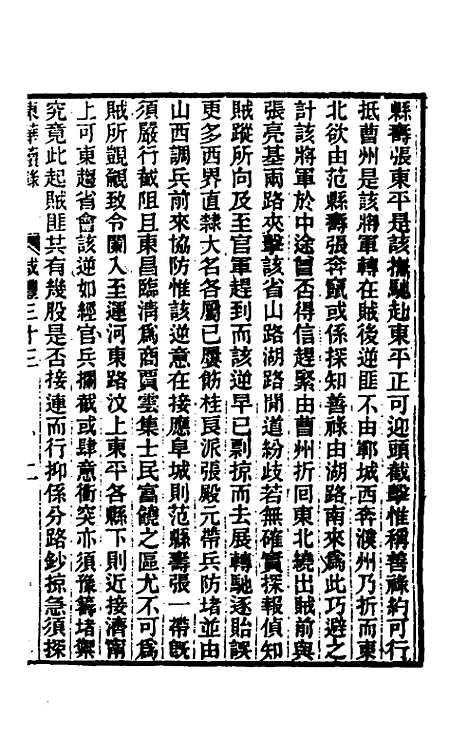 縣壽張東平是該撫馳赴東平正可迎頭截擊惟稱善祿約可行
抵曹州是該將軍轉在賊後逆匪不由鄆城西奔濮州乃折而東
北欲由范縣壽張奔竄或係探知善祿由湖路南來爲此巧避之
計該將軍於中途曾否得信趕緊由曹州折回東北繞出賊前與
張亮基兩路夾擊該省山路湖路閒道紛歧若無確實探報偵知
賊蹤所向及至官軍趕到而該逆早已剽掠而去展轉馳逐貽誤
更多西界直隸大名各屬已屢飭桂良派張殿元帶兵防堵並由
山西調兵前來協防惟該逆意在接應阜城則范縣壽張一帶旣
須嚴行截阻且東昌臨淸爲商賈雲集士民富饒之區尤不可爲
賊所覬覦致令闌入至運河東路汶上東平各縣下則近接濟甯
上可東趨省會該逆如經官兵攔截或肆意衝突亦須豫籌堵禦
究竟此起賊匪共有幾股是否接連而行抑係分路鈔掠急須探
東華續錄 咸豐三十三 二